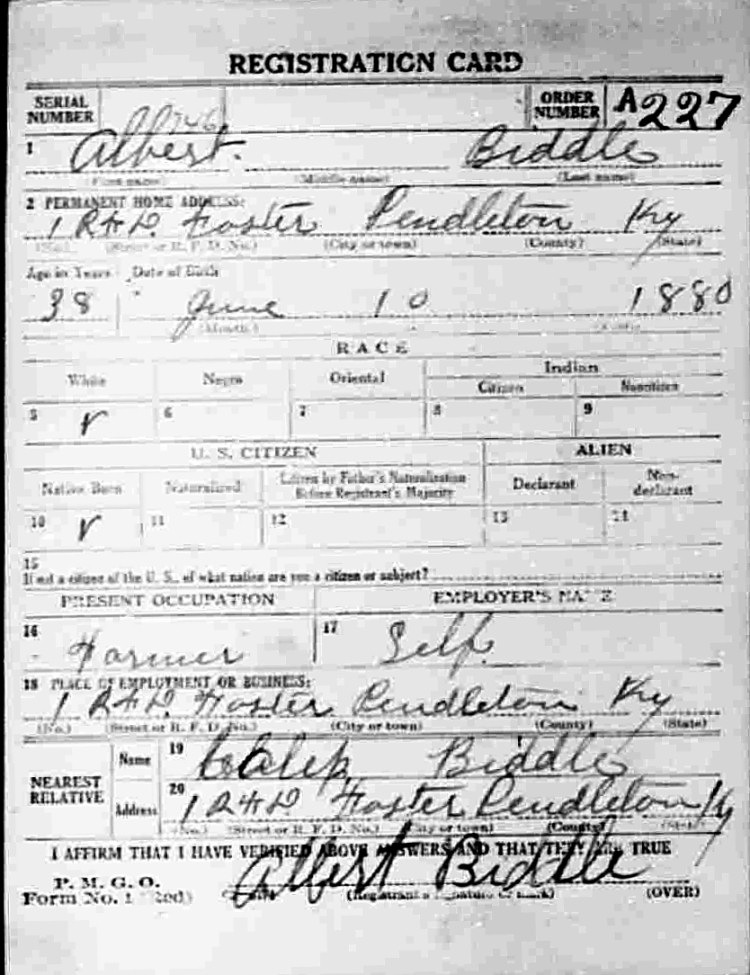 REGISTRATION CARD
SERIAL NUMBER 1746 ORDER NUMBER A227
1 Albert Biddle
(First name) (Middle name) (Last name)
2 PERMANENT HOME ADDRESS:
1 RFD Foster Pendleton Ky
(No.) (Street or R. F. D. No.) (City or town) (County) (State)
Age in Years Date of Birth
38 June 10 1880
(Month.)
RACE
White Negro Oriental Indian
Citizen Noncitizen
5 6 7 8 9
U. S. CITIZEN ALIEN
Native Born Naturalized Citizen by Father's Naturalization Before Registrant's Majority Declarant Non-declarant
10 11 12 13 14
15
If not a citizen of the U. S., of what nation are you a citizen or subject?
PRESENT OCCUPATION EMPLOYER'S NAME
16 Farmer 17 Self
18 PLACE OF EMPLOYMENT OR BUSINESS:
1 RFD Foster Pendleton Ky
(No.) (Street or R. F. D. No.) (City or town) (County) (State)
NEAREST RELATIVE Name 19 Biddle
Address 20 1 RFD Foster Pendleton Ky
(No.) (Street or R. F. D. No.) (City or town) (County) (State)
I AFFIRM THAT I HAVE VERIFIED ABOVE ANSWERS AND THAT THEY ARE TRUE
P. M. G. O.
Form No. 1 (Red) Albert Biddle
(Registrant's signature or mark) (OVER)